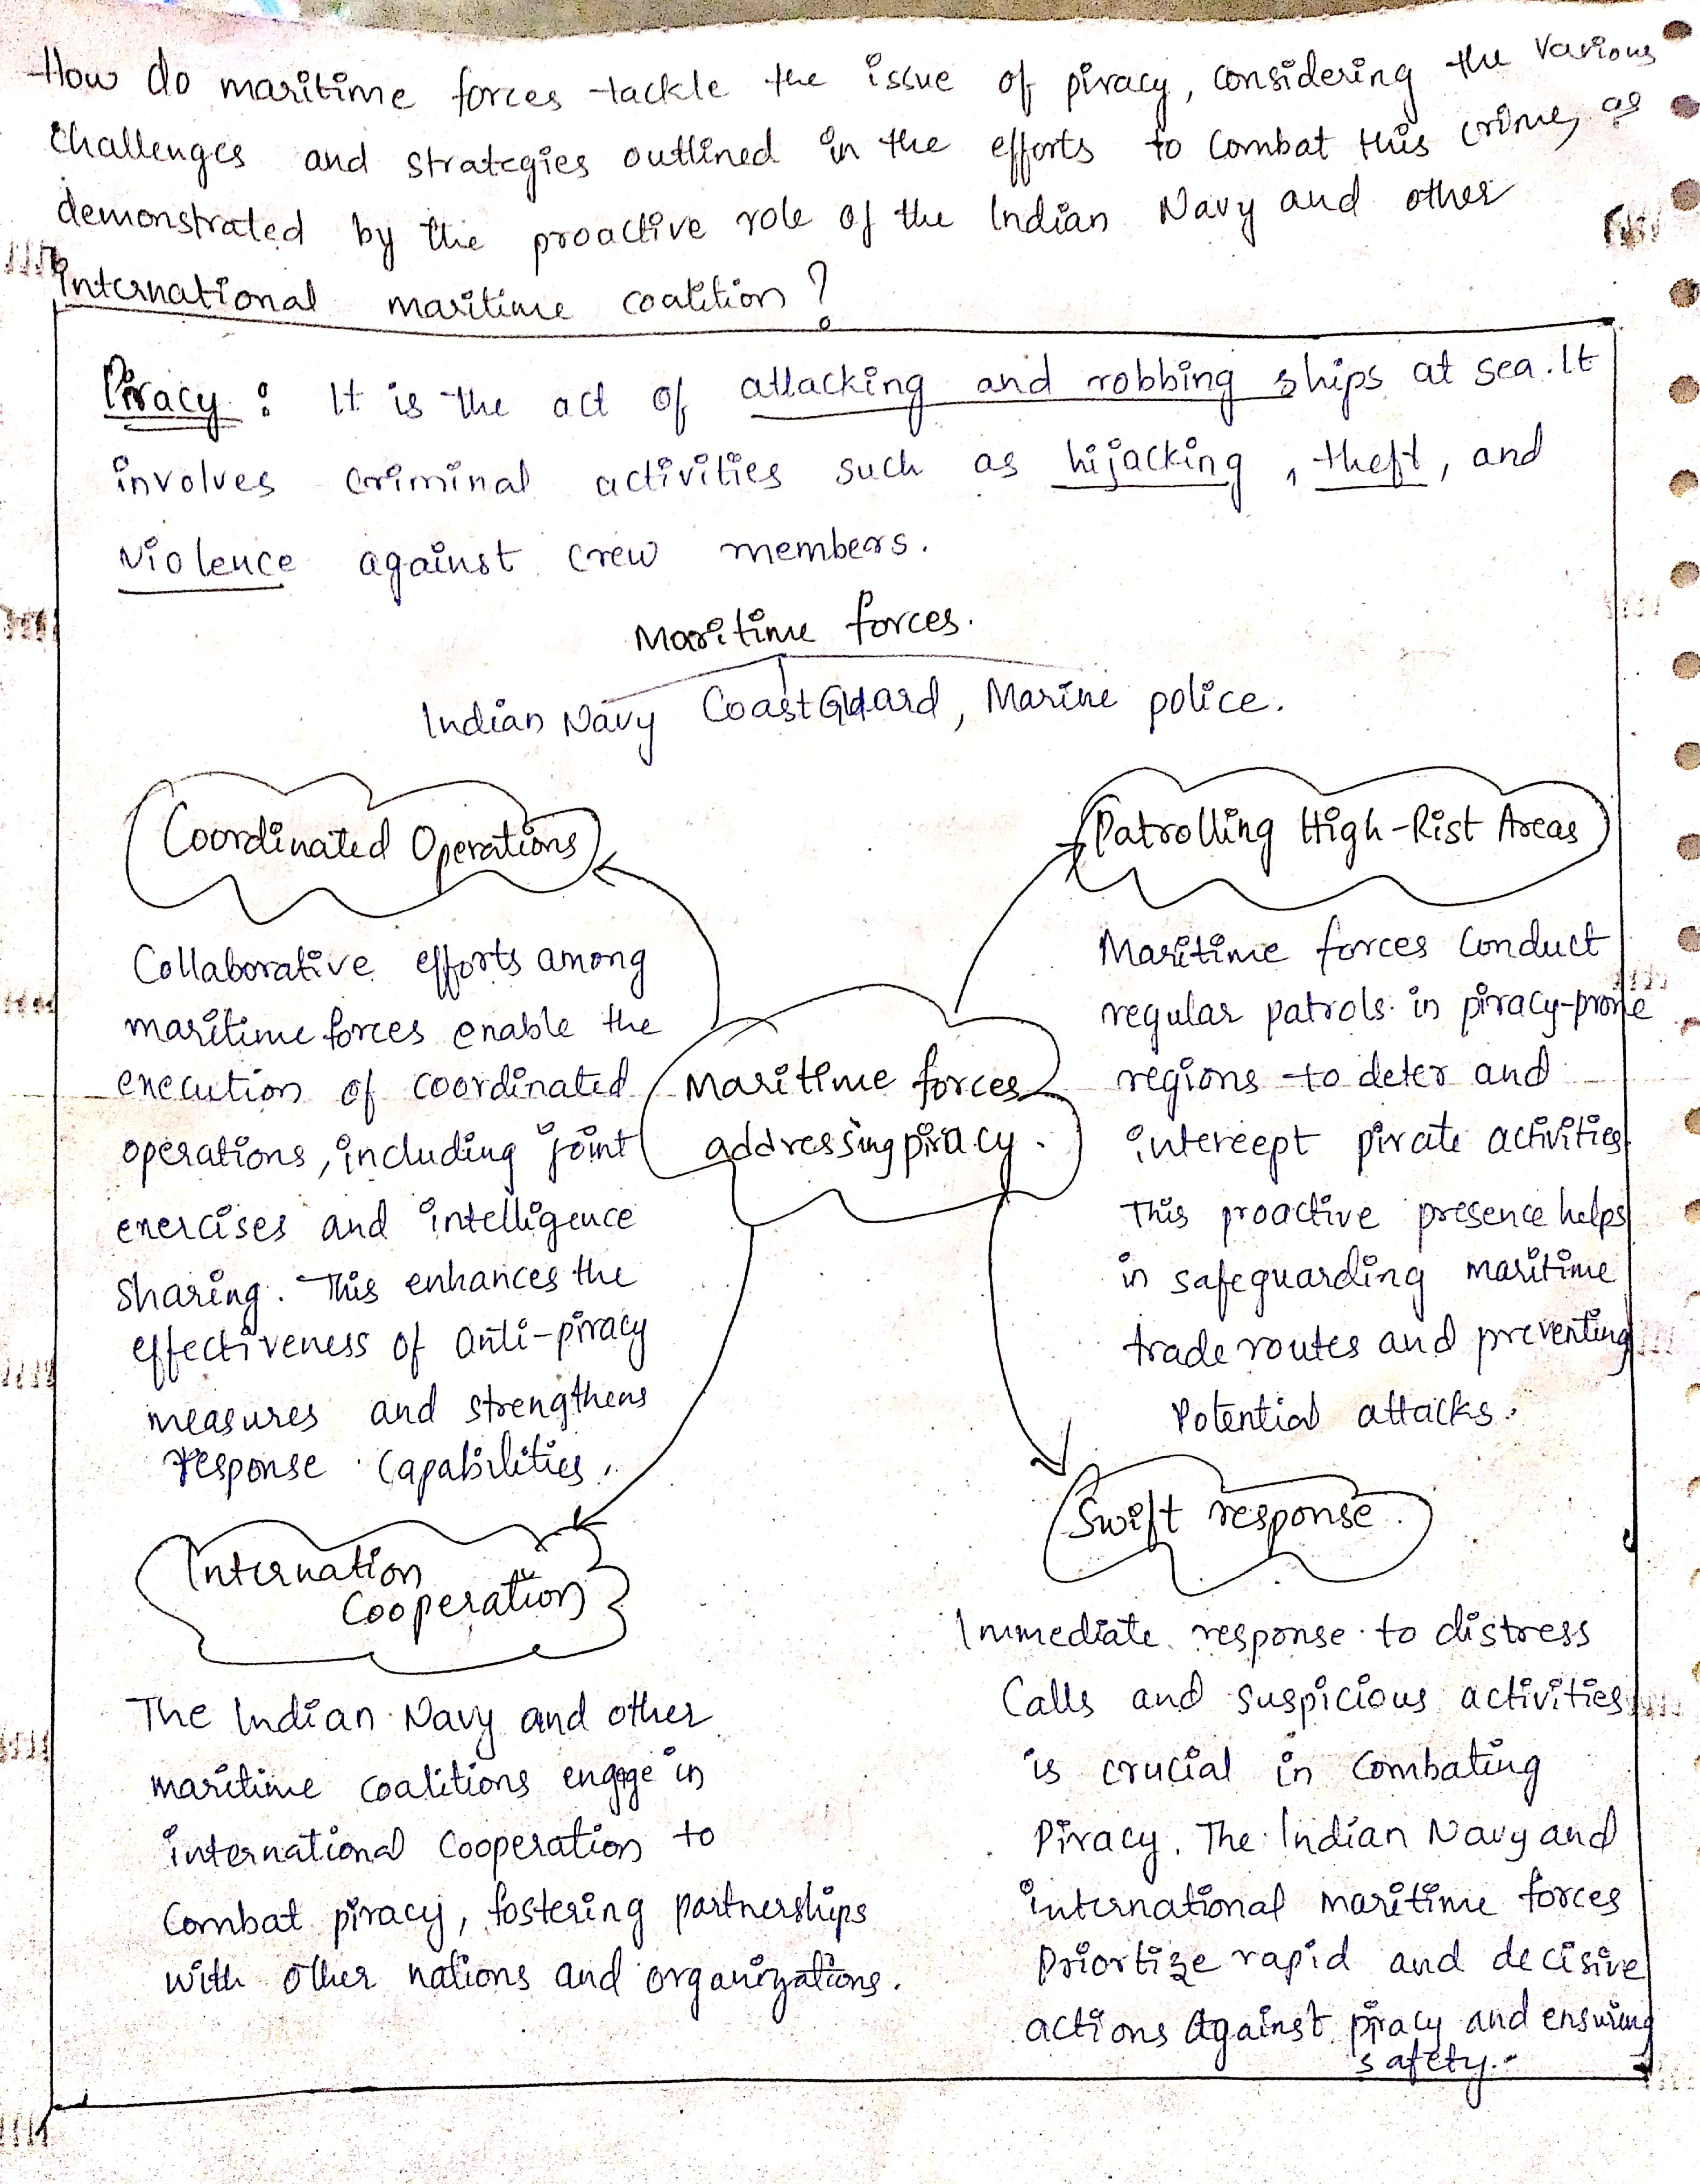 How do maritime forces tackle the issue of piracy, considering the various
challenges and strategies outlined in the efforts to combat this crime, as
demonstrated by the proactive role of the Indian Navy and other
international maritime coalition?
Piracy : It is the act of attacking and robbing ships at sea. It
involves criminal activities such as hijacking, theft, and
violence against crew members.
Maritime forces.
Indian Navy Coast Guard, Marine police.
Coordinated Operations
Collaborative efforts among
maritime forces enable the
execution of coordinated
operations, including joint
exercises and intelligence
sharing. This enhances the
effectiveness of anti-piracy
measures and strengthens
response capabilities.
Patrolling High-Rist Areas
Maritime forces conduct
regular patrols in piracy-prone
regions to deter and
intercept pirate activities
This proactive presence helps
in safeguarding maritime
trade routes and preventing
Potential attacks.
Maritime forces
addressing piracy.
Internation
Cooperation
The Indian Navy and other
maritime coalitions engage in
international cooperation to
Combat piracy, fostering partnerships
with other nations and organizations.
Swift response.
Immediate response to distress
Calls and suspicious activities
is crucial in Combating
Piracy. The Indian Navy and
international maritime forces
Priortize rapid and decisive
actions against piracy and ensuring
safety.